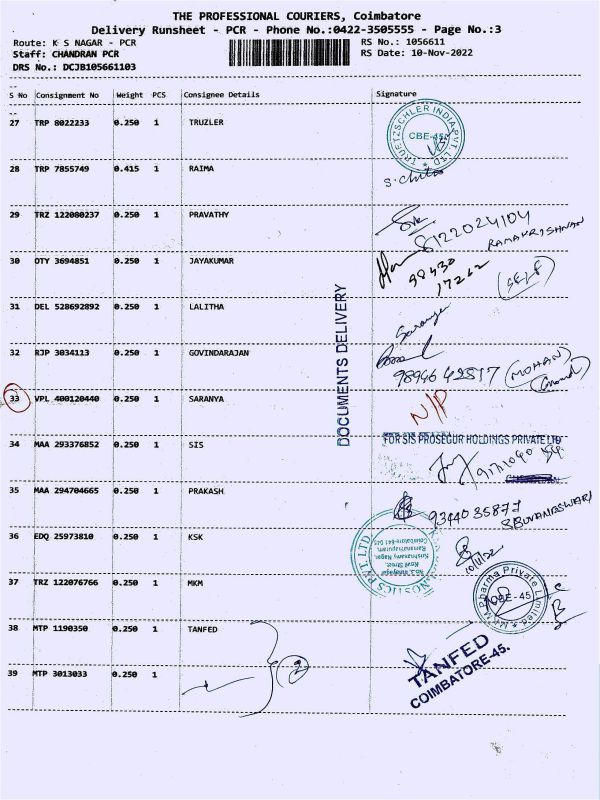 THE PROFESSIONAL COURIERS, Coimbatore
Delivery Runsheet - PCR - Phone No.:0422-3505555 - Page No.:3
Route: K S NAGAR - PCR RS No.: 1056611
Staff: CHANDRAN PCR RS Date: 10-Nov-2022
DRS No.: DCJB105661103
S No Consignment No Weight PCS Consignee Details Signature
27 TRP 8022233 0.250 1 TRUZLER
TRUETZSCHLER INDIA PVT. LTD
CBE-45
28 TRP 7855749 0.415 1 RAIMA
S. Chitra
29 TRZ 122080237 0.250 1 PRAVATHY
8122024104
RAMAKRISHNAN
30 OTY 3694851 0.250 1 JAYAKUMAR
98430
17262
(SELF)
31 DEL 528692892 0.250 1 LALITHA
Saranya
32 RJP 3034113 0.250 1 GOVINDARAJAN
9894642517 (MOHAN)
33 VPL 400120440 0.250 1 SARANYA N/P
DOCUMENTS DELIVERY
34 MAA 293376852 0.250 1 SIS FOR SIS PROSEGUR HOLDINGS PRIVATE LTD
35 MAA 294704665 0.250 1 PRAKASH
9344035877
BUVANESWARI
36 EDQ 25973810 0.250 1 KSK
NOSTICS PVT. LTD
Kovil Street,
Krishnasamy Nagar,
Ramanathapuram,
Coimbatore-641 045
10/11/22
37 TRZ 122076766 0.250 1 MKM
Pharma Private Limited
CBE-45
38 MTP 1190350 0.250 1 TANFED
TANFED
COIMBATORE-45.
39 MTP 3013033 0.250 1
2